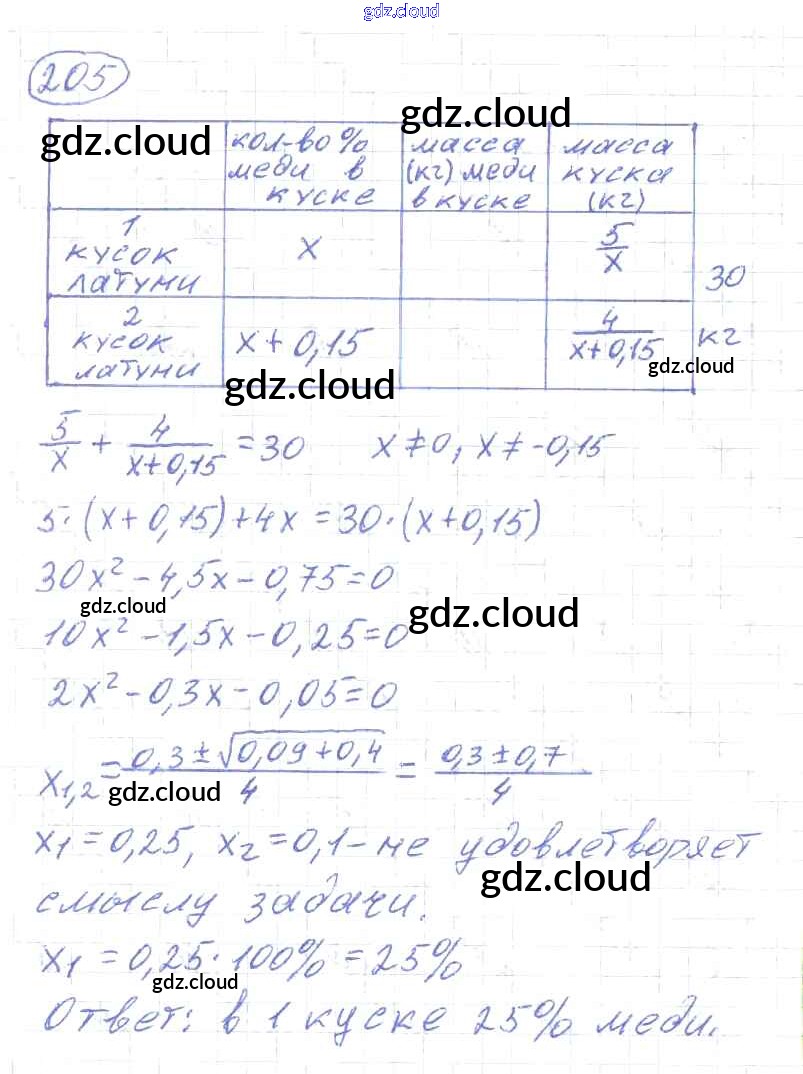 gdz.cloud
205
gdz.cloud
gdz.cloud
кол-во % меди в куске
масса (кг) меди в куске
масса куска (кг)
1 кусок латуни
x
5/x
2 кусок латуни
x + 0,15
4/(x+0,15)
30 кг
gdz.cloud
gdz.cloud
5/x + 4/(x+0,15) = 30 x ≠ 0, x ≠ -0,15
5·(x+0,15)+4x = 30·(x+0,15)
30x² - 4,5x - 0,75 = 0
gdz.cloud
gdz.cloud
10x² - 1,5x - 0,25 = 0
2x² - 0,3x - 0,05 = 0
x1,2 = (0,3 ± √(0,09+0,4))/4 = (0,3 ± 0,7)/4
gdz.cloud
x1 = 0,25, x2 = 0,1 - не удовлетворяет
gdz.cloud
смыслу задачи.
x1 = 0,25·100% = 25%
gdz.cloud
Ответ: в 1 куске 25% меди.